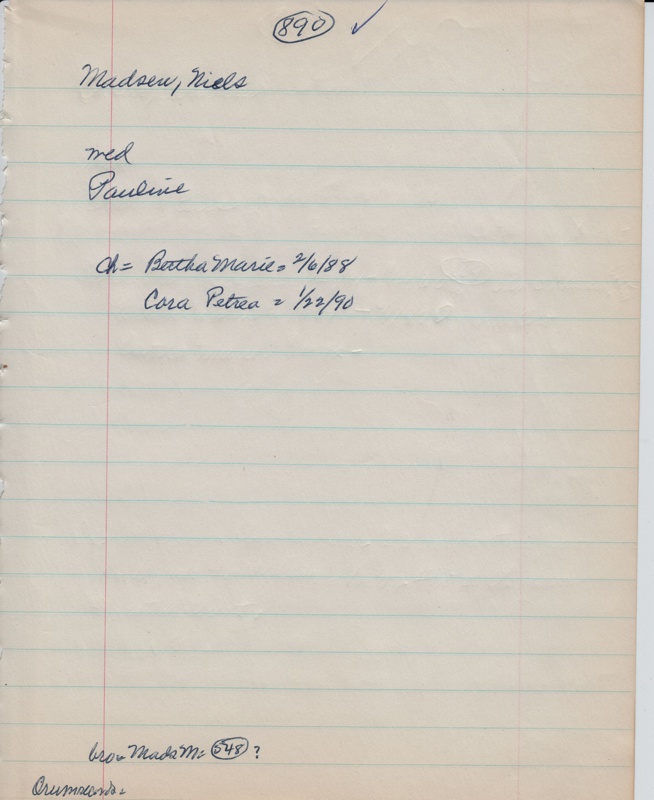 890 ✓
Madsen, Niels
med
Pauline
ch = Bertha Marie = 2/6/88
Cora Petrea = 1/22/90
bro = Mads M = 548 ?